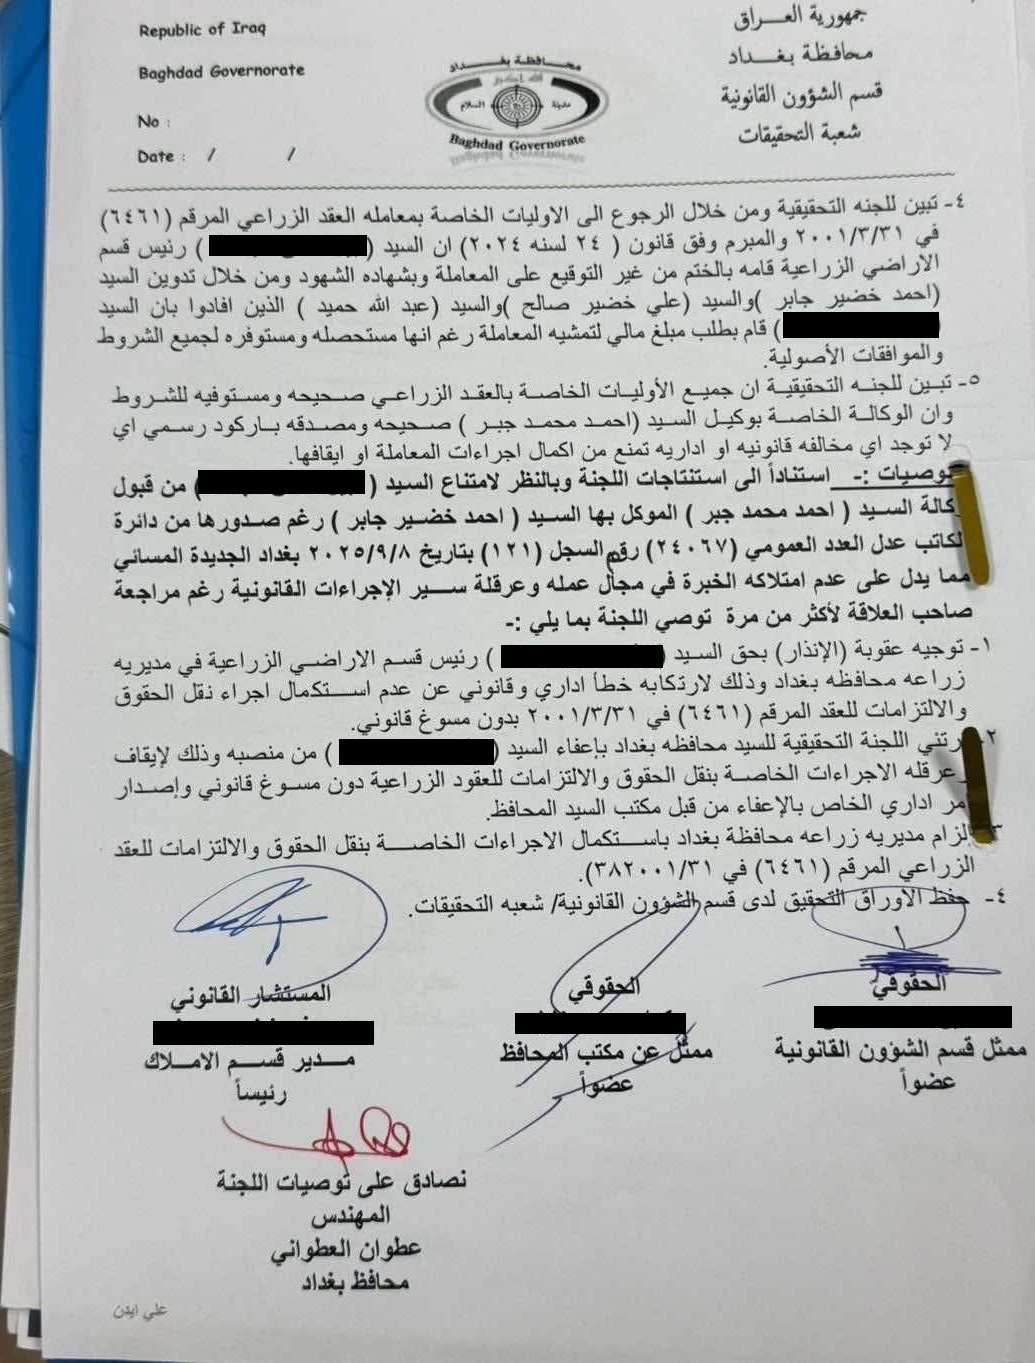 Republic of Iraq
Baghdad Governorate
No :
Date :   /   /
محافظة بغداد
الله اكبر
مدينة السلام
Baghdad Governorate
جمهورية العراق
محافظة بغداد
قسم الشؤون القانونية
شعبة التحقيقات
٤- تبين للجنه التحقيقية ومن خلال الرجوع الى الاوليات الخاصة بمعامله العقد الزراعي المرقم (٦٤٦١)
في ٢٠٠١/٣/٣١ والمبرم وفق قانون ( ٢٤ لسنه ٢٠٢٤) ان السيد ( ) رئيس قسم
الاراضي الزراعية قامه بالختم من غير التوقيع على المعاملة وبشهاده الشهود ومن خلال تدوين السيد
(احمد خضير جابر )والسيد (علي خضير صالح )والسيد (عبد الله حميد ) الذين افادوا بان السيد
( ) قام بطلب مبلغ مالي لتمشيه المعاملة رغم انها مستحصله ومستوفره لجميع الشروط
والموافقات الأصولية.
٥- تبين للجنه التحقيقية ان جميع الأوليات الخاصة بالعقد الزراعي صحيحه ومستوفيه للشروط
وان الوكالة الخاصة بوكيل السيد (احمد محمد جبر ) صحيحه ومصدقه باركود رسمي اي
لا توجد اي مخالفه قانونيه او اداريه تمنع من اكمال اجراءات المعاملة او ايقافها.
توصيات :- استناداً الى استنتاجات اللجنة وبالنظر لامتناع السيد ( ) من قبول
وكالة السيد ( احمد محمد جبر ) الموكل بها السيد ( احمد خضير جابر ) رغم صدورها من دائرة
الكاتب عدل العدد العمومي (٢٤٠٦٧) رقم السجل (١٢١) بتاريخ ٢٠٢٥/٩/٨ بغداد الجديدة المسائي
مما يدل على عدم امتلاكه الخبرة في مجال عمله وعرقلة سير الإجراءات القانونية رغم مراجعة
صاحب العلاقة لأكثر من مرة توصي اللجنة بما يلي :-
١- توجيه عقوبة (الإنذار) بحق السيد ( ) رئيس قسم الاراضي الزراعية في مديريه
زراعه محافظه بغداد وذلك لارتكابه خطأ اداري وقانوني عن عدم استكمال اجراء نقل الحقوق
والالتزامات للعقد المرقم (٦٤٦١) في ٢٠٠١/٣/٣١ بدون مسوغ قانوني.
٢- ترتئي اللجنة التحقيقية للسيد محافظه بغداد بإعفاء السيد ( ) من منصبه وذلك لإيقاف
وعرقله الاجراءات الخاصة بنقل الحقوق والالتزامات للعقود الزراعية دون مسوغ قانوني وإصدار
امر اداري الخاص بالإعفاء من قبل مكتب السيد المحافظ.
٣- الزام مديريه زراعه محافظة بغداد باستكمال الاجراءات الخاصة بنقل الحقوق والالتزامات للعقد
الزراعي المرقم (٦٤٦١) في ٣٨٢٠٠١/٣١).
٤- حفظ الاوراق التحقيق لدى قسم الشؤون القانونية/ شعبه التحقيقات.
الحقوقي
ممثل قسم الشؤون القانونية
عضواً
الحقوقي
ممثل عن مكتب المحافظ
عضواً
المستشار القانوني
مدير قسم الاملاك
رئيساً
نصادق على توصيات اللجنة
المهندس
عطوان العطواني
محافظ بغداد
علي ايدن